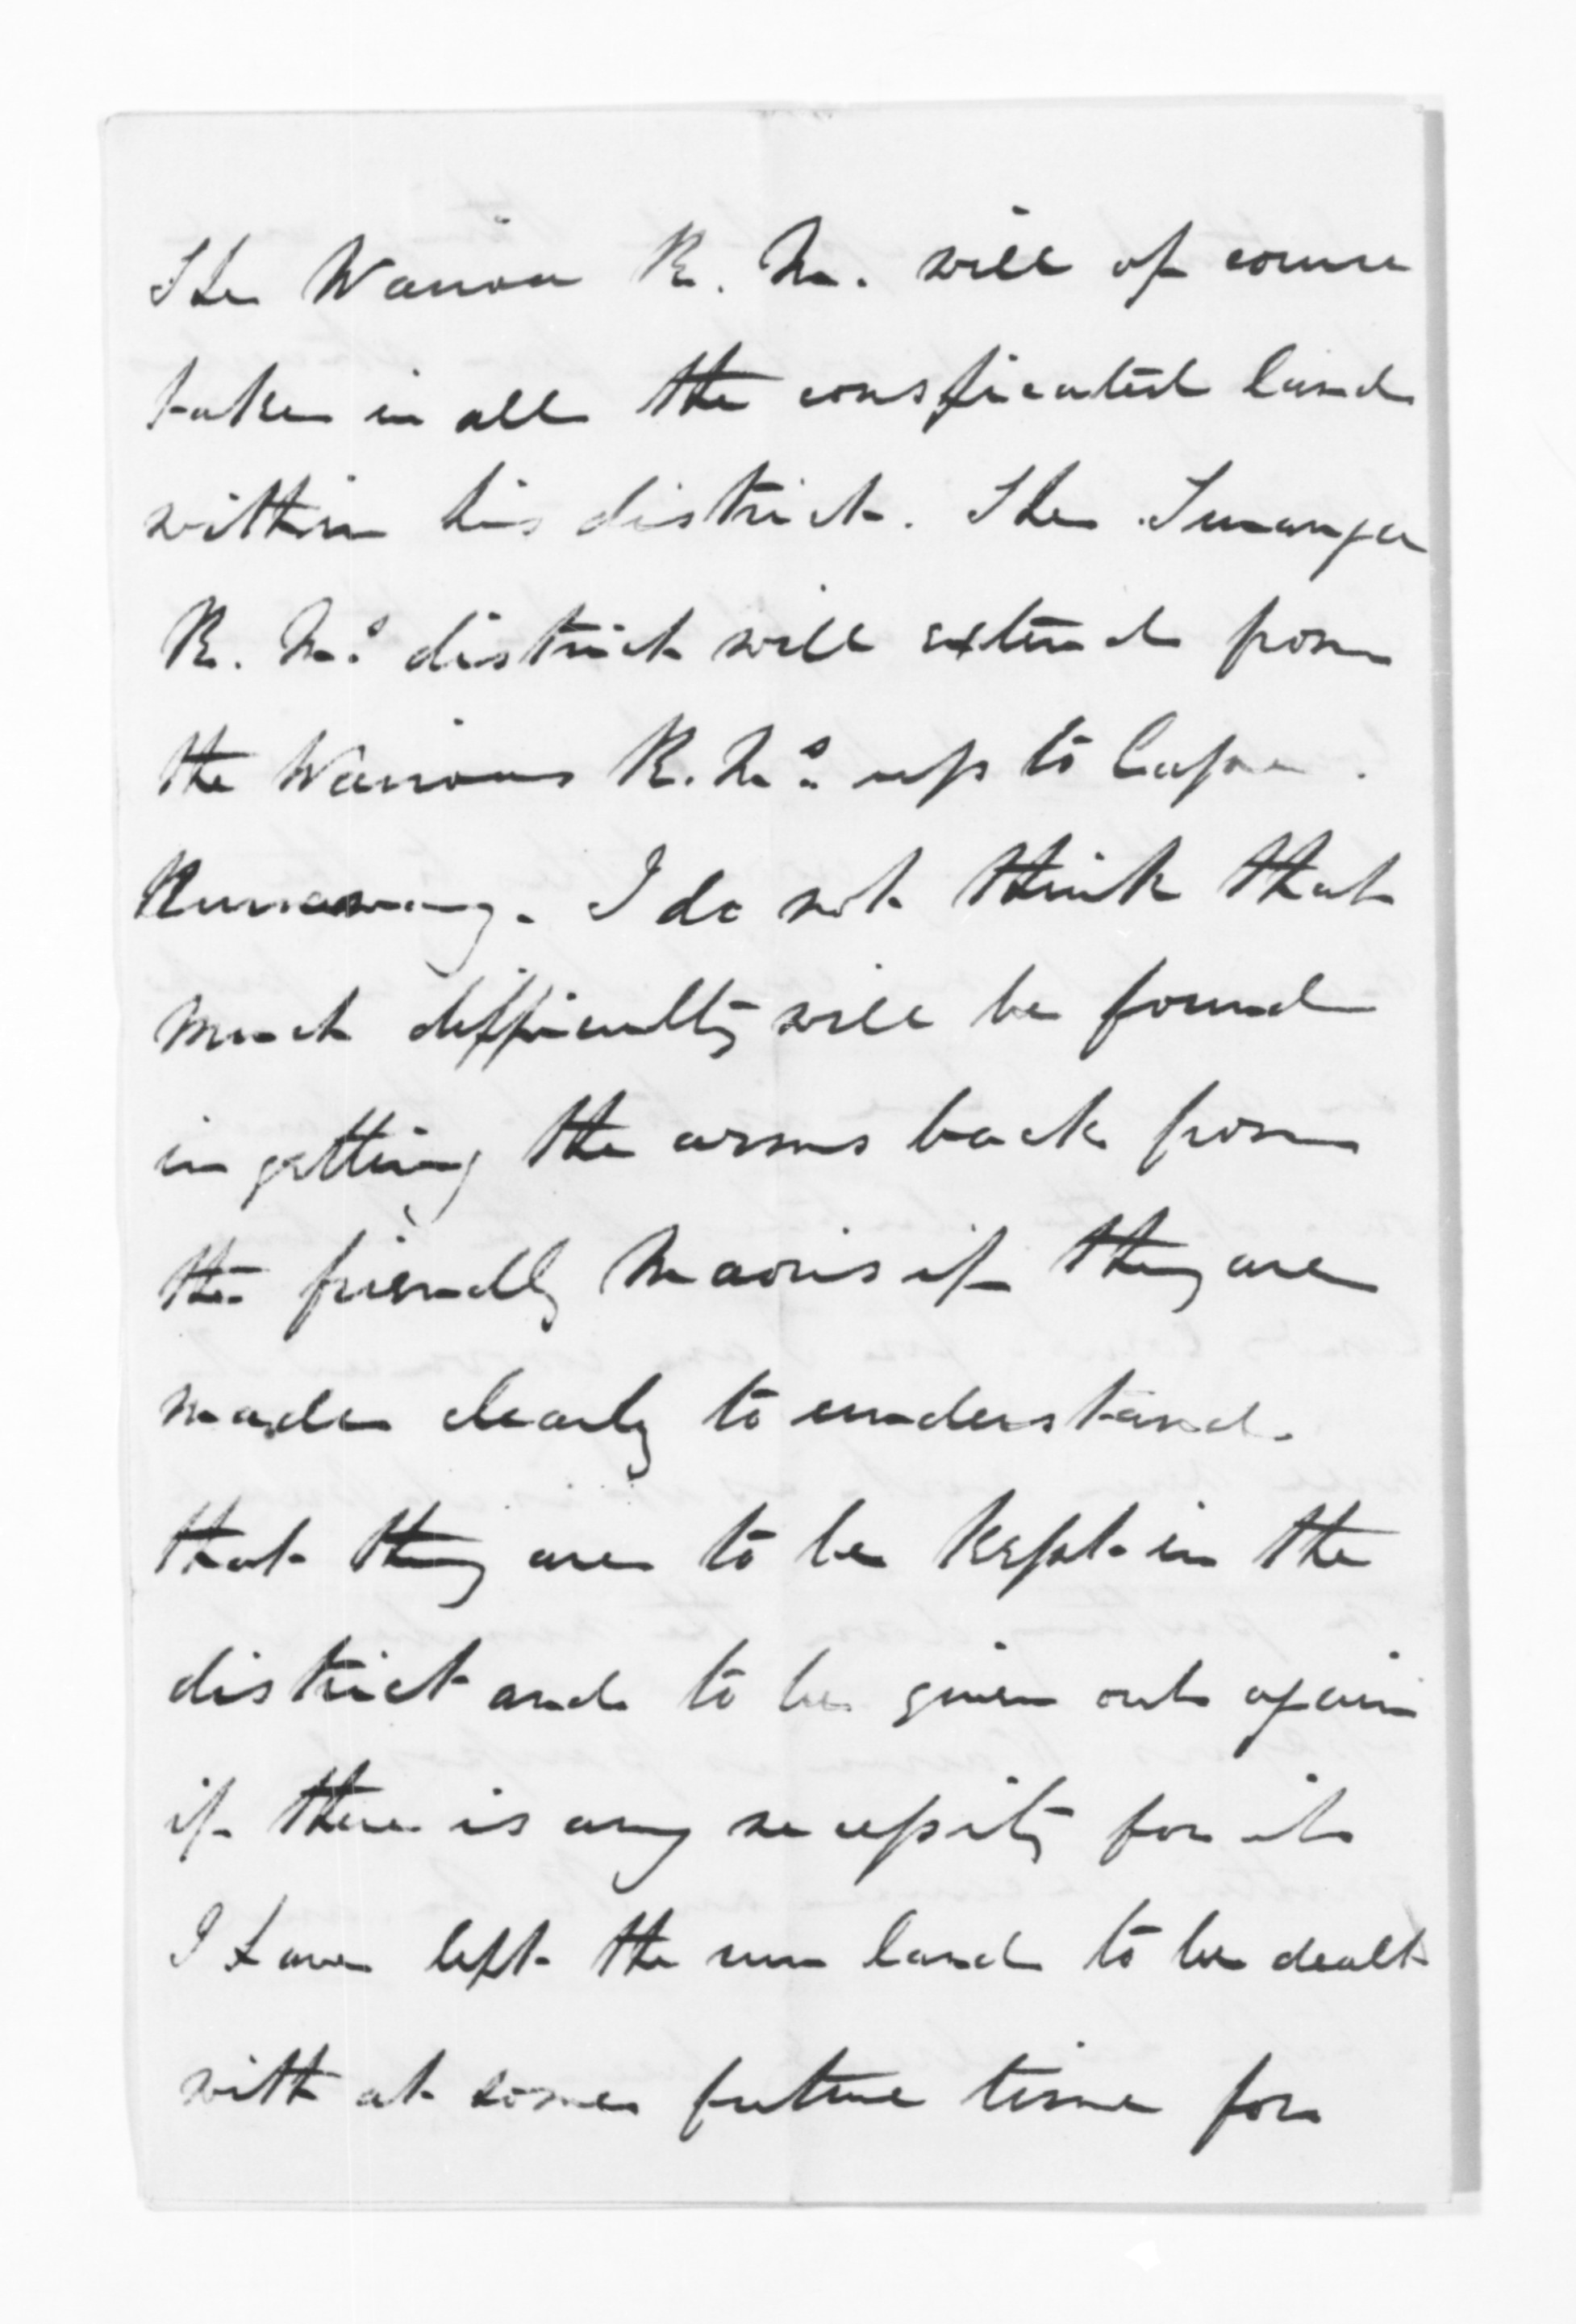 The Wairoa R. M. will of course
take in all the consficated land
within his district. The Turanga
R. M.s district will extend from
the Wairoas R. M.s up to Cape
Runaway. I do not think that
much difficulty will be found
in getting the arms back from
the friendly Maoris if they are
made clearly to understand
that they are to be kept in the
district and to be given out again
if there is any necessity for it
I have left the run land to be dealt
with at some future time for